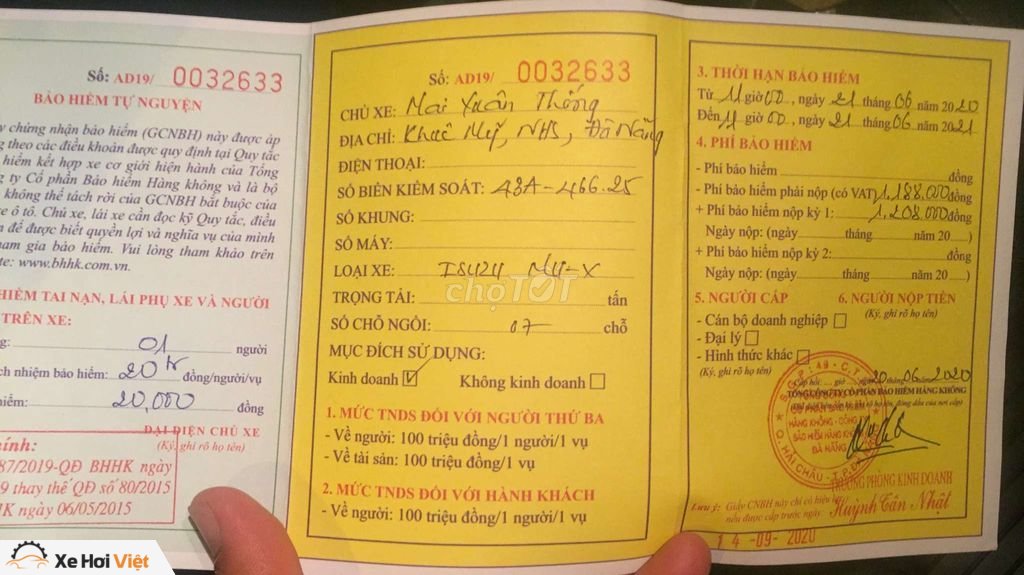 Số: AD19/ 0032633
BẢO HIỂM TỰ NGUYỆN
y chứng nhận bảo hiểm (GCNBH) này được áp
g theo các điều khoản được quy định tại Quy tắc
hiểm kết hợp xe cơ giới hiện hành của Tổng
g ty Cổ phần Bảo hiểm Hàng không và là bộ
không thể tách rời của GCNBH bắt buộc của
e ô tô. Chủ xe, lái xe cần đọc kỹ Quy tắc, điều
n để được biết quyền lợi và nghĩa vụ của mình
ham gia bảo hiểm. Vui lòng tham khảo trên
te: www.bhhk.com.vn.
HIỂM TAI NẠN, LÁI PHỤ XE VÀ NGƯỜI
TRÊN XE:
g: 01 người
ách nhiệm bảo hiểm: 20tr đồng/người/vụ
hiểm: 20,000 đồng
ĐẠI DIỆN CHỦ XE
(Ký, ghi rõ họ tên)
hính:
87/2019-QĐ BHHK ngày
9 thay thế QĐ số 80/2015
HK ngày 06/05/2015
Số: AD19/ 0032633
CHỦ XE: Mai Xuân Thống
ĐỊA CHỈ: Khuê Mỹ, NHS, Đà Nẵng
ĐIỆN THOẠI:
SỐ BIỂN KIỂM SOÁT: 43A-466.25
SỐ KHUNG:
SỐ MÁY:
LOẠI XE: ISUZU MU-X
TRỌNG TẢI: tấn
SỐ CHỖ NGỒI: 07 chỗ
MỤC ĐÍCH SỬ DỤNG:
Kinh doanh Không kinh doanh
1. MỨC TNDS ĐỐI VỚI NGƯỜI THỨ BA
- Về người: 100 triệu đồng/1 người/1 vụ
- Về tài sản: 100 triệu đồng/1 vụ
2. MỨC TNDS ĐỐI VỚI HÀNH KHÁCH
- Về người: 100 triệu đồng/1 người/1 vụ
3. THỜI HẠN BẢO HIỂM
Từ 11 giờ 00, ngày 21 tháng 06 năm 2020
Đến 11 giờ 00, ngày 21 tháng 06 năm 2021
4. PHÍ BẢO HIỂM
- Phí bảo hiểm đồng
- Phí bảo hiểm phải nộp (có VAT) 1,188.000 đồng
+ Phí bảo hiểm nộp kỳ 1: 1,208.000 đồng
Ngày nộp: (ngày tháng năm 20 )
+ Phí bảo hiểm nộp kỳ 2: đồng
Ngày nộp: (ngày tháng năm 20 )
5. NGƯỜI CẤP 6. NGƯỜI NỘP TIỀN
- Cán bộ doanh nghiệp (Ký, ghi rõ họ tên)
- Đại lý
- Hình thức khác
(Ký, ghi rõ họ tên)
Cấp hồi: giờ ngày 20-06.2020
TỔNG CÔNG TY CỔ PHẦN BẢO HIỂM HÀNG KHÔNG
HÀNG KHÔNG - CÔNG TY
BẢO HIỂM HÀNG KHÔNG
ĐÀ NẴNG
Q. HẢI CHÂU - T.P ĐÀ
TRƯỞNG PHÒNG KINH DOANH
Huỳnh Tấn Nhật
Lưu ý: Giấy CNBH này chỉ có hiệu lực
nếu được cấp trước ngày:
14-09-2020
chợTỐT
Xe Hơi Việt